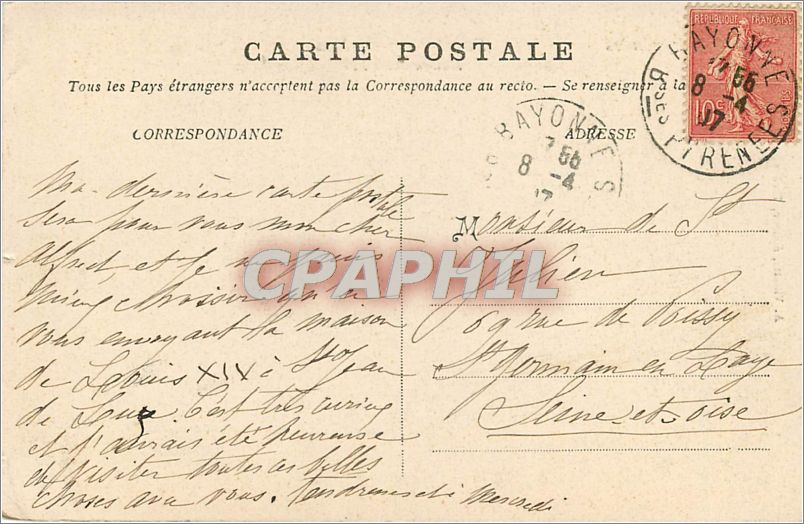 CARTE POSTALE
Tous les Pays étrangers n'acceptent pas la Correspondance au recto. — Se renseigner à la
CORRESPONDANCE
ADRESSE
REPUBLIQUE FRANÇAISE
10c
BAYONNE
Bses PYRENEES
17 55
8 -4
07
BAYONNE
7 55
8 -4
Ma dernière carte postale
sera pour vous mon cher
Alfred, et je ne puis
mieux choisir qu'en
vous envoyant la maison
de Louis XIV à St Jean
de Luz. C'est très curieux
et j'aurais été heureuse
de visiter toutes ces belles
choses avec vous. Tendresses et à Mercredi
Monsieur de St
Julien
69 rue de Poissy
St Germain en Laye
Seine-et-Oise
CPAPHIL